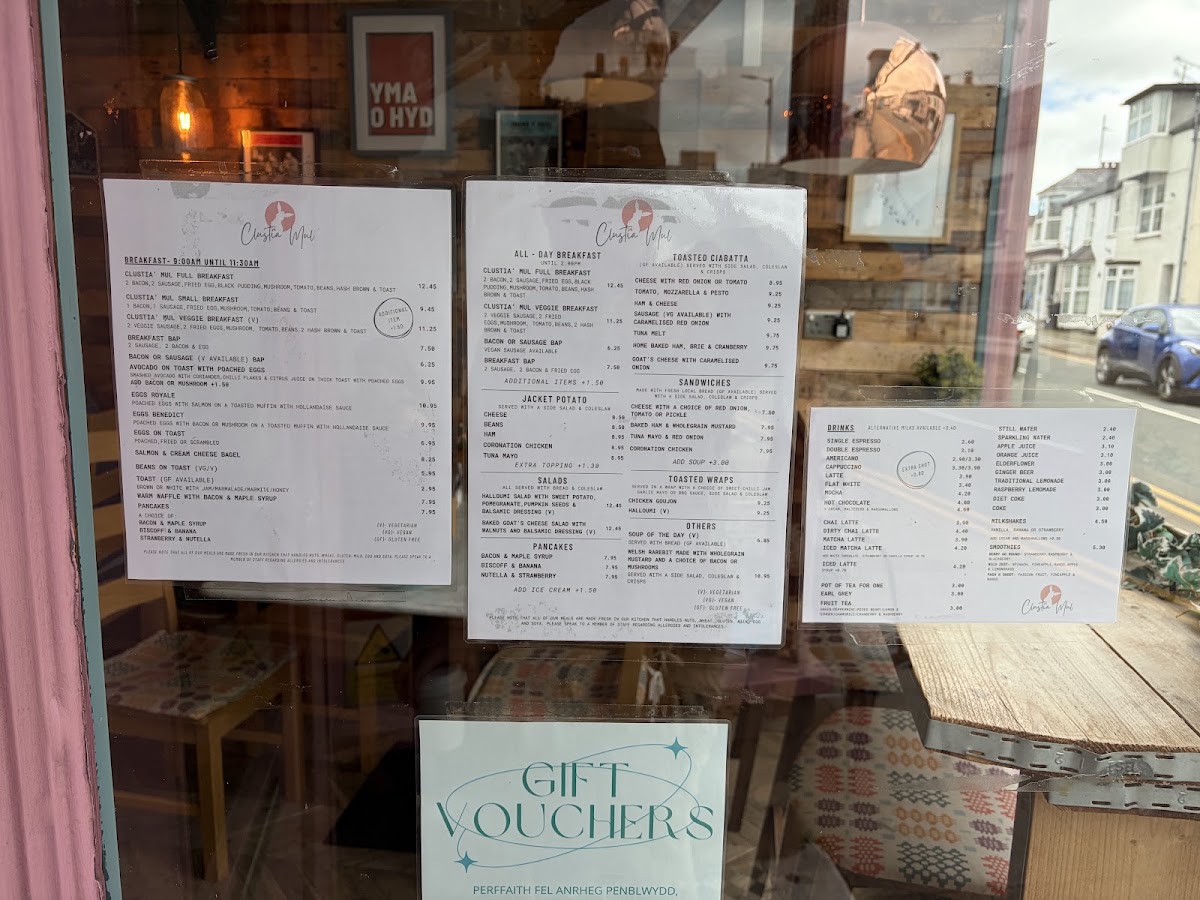 YMA
O HYD
Clustia Mul
BREAKFAST- 9:00AM UNTIL 11:30AM
CLUSTIA' MUL FULL BREAKFAST
2 BACON, 2 SAUSAGE, FRIED EGG, BLACK PUDDING, MUSHROOM, TOMATO, BEANS, HASH BROWN & TOAST 12.45
CLUSTIA' MUL SMALL BREAKFAST
1 BACON, 1 SAUSAGE, FRIED EGG, MUSHROOM, TOMATO, BEANS & TOAST 9.45
ADDITIONAL
ITEM
+1.50
CLUSTIA' MUL VEGGIE BREAKFAST (V)
2 VEGGIE SAUSAGE, 2 FRIED EGGS, MUSHROOM, TOMATO, BEANS, 2 HASH BROWN & TOAST 11.25
BREAKFAST BAP
2 SAUSAGE, 2 BACON & EGG 7.50
BACON OR SAUSAGE (V AVAILABLE) BAP 6.25
AVOCADO ON TOAST WITH POACHED EGGS
SMASHED AVOCADO WITH CORIANDER, CHILLI FLAKES & CITRUS JUICE ON THICK TOAST WITH POACHED EGGS 9.95
ADD BACON OR MUSHROOM +1.50
EGGS ROYALE
POACHED EGGS WITH SALMON ON A TOASTED MUFFIN WITH HOLLANDAISE SAUCE 10.95
EGGS BENEDICT
POACHED EGGS WITH BACON OR MUSHROOM ON A TOASTED MUFFIN WITH HOLLANDAISE SAUCE 9.95
EGGS ON TOAST
POACHED, FRIED OR SCRAMBLED 6.95
SALMON & CREAM CHEESE BAGEL 8.25
BEANS ON TOAST (VG/V) 5.95
TOAST (GF AVAILABLE)
BROWN OR WHITE WITH JAM/MARMALADE/MARMITE/HONEY 2.95
WARM WAFFLE WITH BACON & MAPLE SYRUP 7.95
PANCAKES 7.95
A CHOICE OF
BACON & MAPLE SYRUP
BISCOFF & BANANA
STRAWBERRY & NUTELLA
(V)- VEGETARIAN
(VG)- VEGAN
(GF)- GLUTEN FREE
PLEASE NOTE THAT ALL OF OUR MEALS ARE MADE FRESH IN OUR KITCHEN THAT HANDLES NUTS, WHEAT, GLUTEN, MILK, EGG AND SOYA. PLEASE SPEAK TO A
MEMBER OF STAFF REGARDING ALLERGIES AND INTOLERANCES.
Clustia Mul
ALL - DAY BREAKFAST
UNTIL 2.00PM
CLUSTIA' MUL FULL BREAKFAST
2 BACON, 2 SAUSAGE, FRIED EGG, BLACK
PUDDING, MUSHROOM, TOMATO, BEANS, HASH 12.45
BROWN & TOAST
CLUSTIA' MUL VEGGIE BREAKFAST
2 VEGGIE SAUSAGE, 2 FRIED
EGGS, MUSHROOM, TOMATO, BEANS, 2 HASH 11.25
BROWN & TOAST
BACON OR SAUSAGE BAP 6.25
VEGAN SAUSAGE AVAILABLE
BREAKFAST BAP
2 SAUSAGE, 2 BACON & FRIED EGG 7.50
ADDITIONAL ITEMS +1.50
JACKET POTATO
SERVED WITH A SIDE SALAD & COLESLAW
CHEESE 8.50
BEANS 8.50
HAM 8.95
CORONATION CHICKEN 8.95
TUNA MAYO 8.95
EXTRA TOPPING +1.30
SALADS
ALL SERVED WITH BREAD & COLESLAW
HALLOUMI SALAD WITH SWEET POTATO,
POMEGRANATE, PUMPKIN SEEDS & 12.45
BALSAMIC DRESSING (V)
BAKED GOAT'S CHEESE SALAD WITH 12.45
WALNUTS AND BALSAMIC DRESSING (V)
PANCAKES
BACON & MAPLE SYRUP 7.95
BISCOFF & BANANA 7.95
NUTELLA & STRAWBERRY 7.95
ADD ICE CREAM +1.50
TOASTED CIABATTA
(GF AVAILABLE) SERVED WITH SIDE SALAD, COLESLAW
& CRISPS
CHEESE WITH RED ONION OR TOMATO 8.95
TOMATO, MOZZARELLA & PESTO 9.25
HAM & CHEESE 9.25
SAUSAGE (VG AVAILABLE) WITH 9.25
CARAMELISED RED ONION
TUNA MELT 9.75
HOME BAKED HAM, BRIE & CRANBERRY 9.75
GOAT'S CHEESE WITH CARAMELISED 9.75
ONION
SANDWICHES
MADE WITH FRESH LOCAL BREAD (GF AVAILABLE) SERVED
WITH A SIDE SALAD, COLESLAW & CRISPS
CHEESE WITH A CHOICE OF RED ONION, 7.50
TOMATO OR PICKLE
BAKED HAM & WHOLEGRAIN MUSTARD 7.95
TUNA MAYO & RED ONION 7.95
CORONATION CHICKEN 7.95
ADD SOUP +3.00
TOASTED WRAPS
SERVED IN A WRAP WITH A CHOICE OF SWEET CHILLI JAM
GARLIC MAYO OR BBQ SAUCE, SIDE SALAD & COLESLAW
CHICKEN GOUJON 9.25
HALLOUMI (V) 9.25
OTHERS
SOUP OF THE DAY (V) 6.85
SERVED WITH BREAD (GF AVAILABLE)
WELSH RAREBIT MADE WITH WHOLEGRAIN
MUSTARD AND A CHOICE OF BACON OR
MUSHROOMS
SERVED WITH A SIDE SALAD, COLESLAW & 10.95
CRISPS
(V)- VEGETARIAN
(VG)- VEGAN
(GF)- GLUTEN FREE
PLEASE NOTE THAT ALL OF OUR MEALS ARE MADE FRESH IN OUR KITCHEN THAT HANDLES NUTS, WHEAT, GLUTEN, MILK, EGG
AND SOYA. PLEASE SPEAK TO A MEMBER OF STAFF REGARDING ALLERGIES AND INTOLERANCES.
DRINKS ALTERNATIVE MILKS AVAILABLE +0.40
SINGLE ESPRESSO 2.60
DOUBLE ESPRESSO 3.10
AMERICANO 2.90/3.30
CAPPUCCINO 3.30/3.90
LATTE 3.40
FLAT WHITE
MOCHA 4.20
HOT CHOCOLATE
EXTRA SHOT
+0.40
CHAI LATTE
DIRTY CHAI LATTE 4.40
MATCHA LATTE 3.90
ICED MATCHA LATTE 4.20
ICED LATTE 4.20
POT OF TEA FOR ONE 3.00
EARL GREY 3.00
FRUIT TEA 3.00
STILL WATER 2.40
SPARKLING WATER 2.40
APPLE JUICE 3.10
ORANGE JUICE 3.10
ELDERFLOWER 3.00
GINGER BEER 3.00
TRADITIONAL LEMONADE 3.00
RASPBERRY LEMONADE 3.00
DIET COKE 3.00
COKE 3.00
MILKSHAKES 4.50
VANILLA, BANANA OR STRAWBERRY
ADD CREAM AND MARSHMALLOWS +0.50
SMOOTHIES 5.30
Clustia Mul
GIFT
VOUCHERS
PERFFAITH FEL ANRHEG PENBLWYDD,